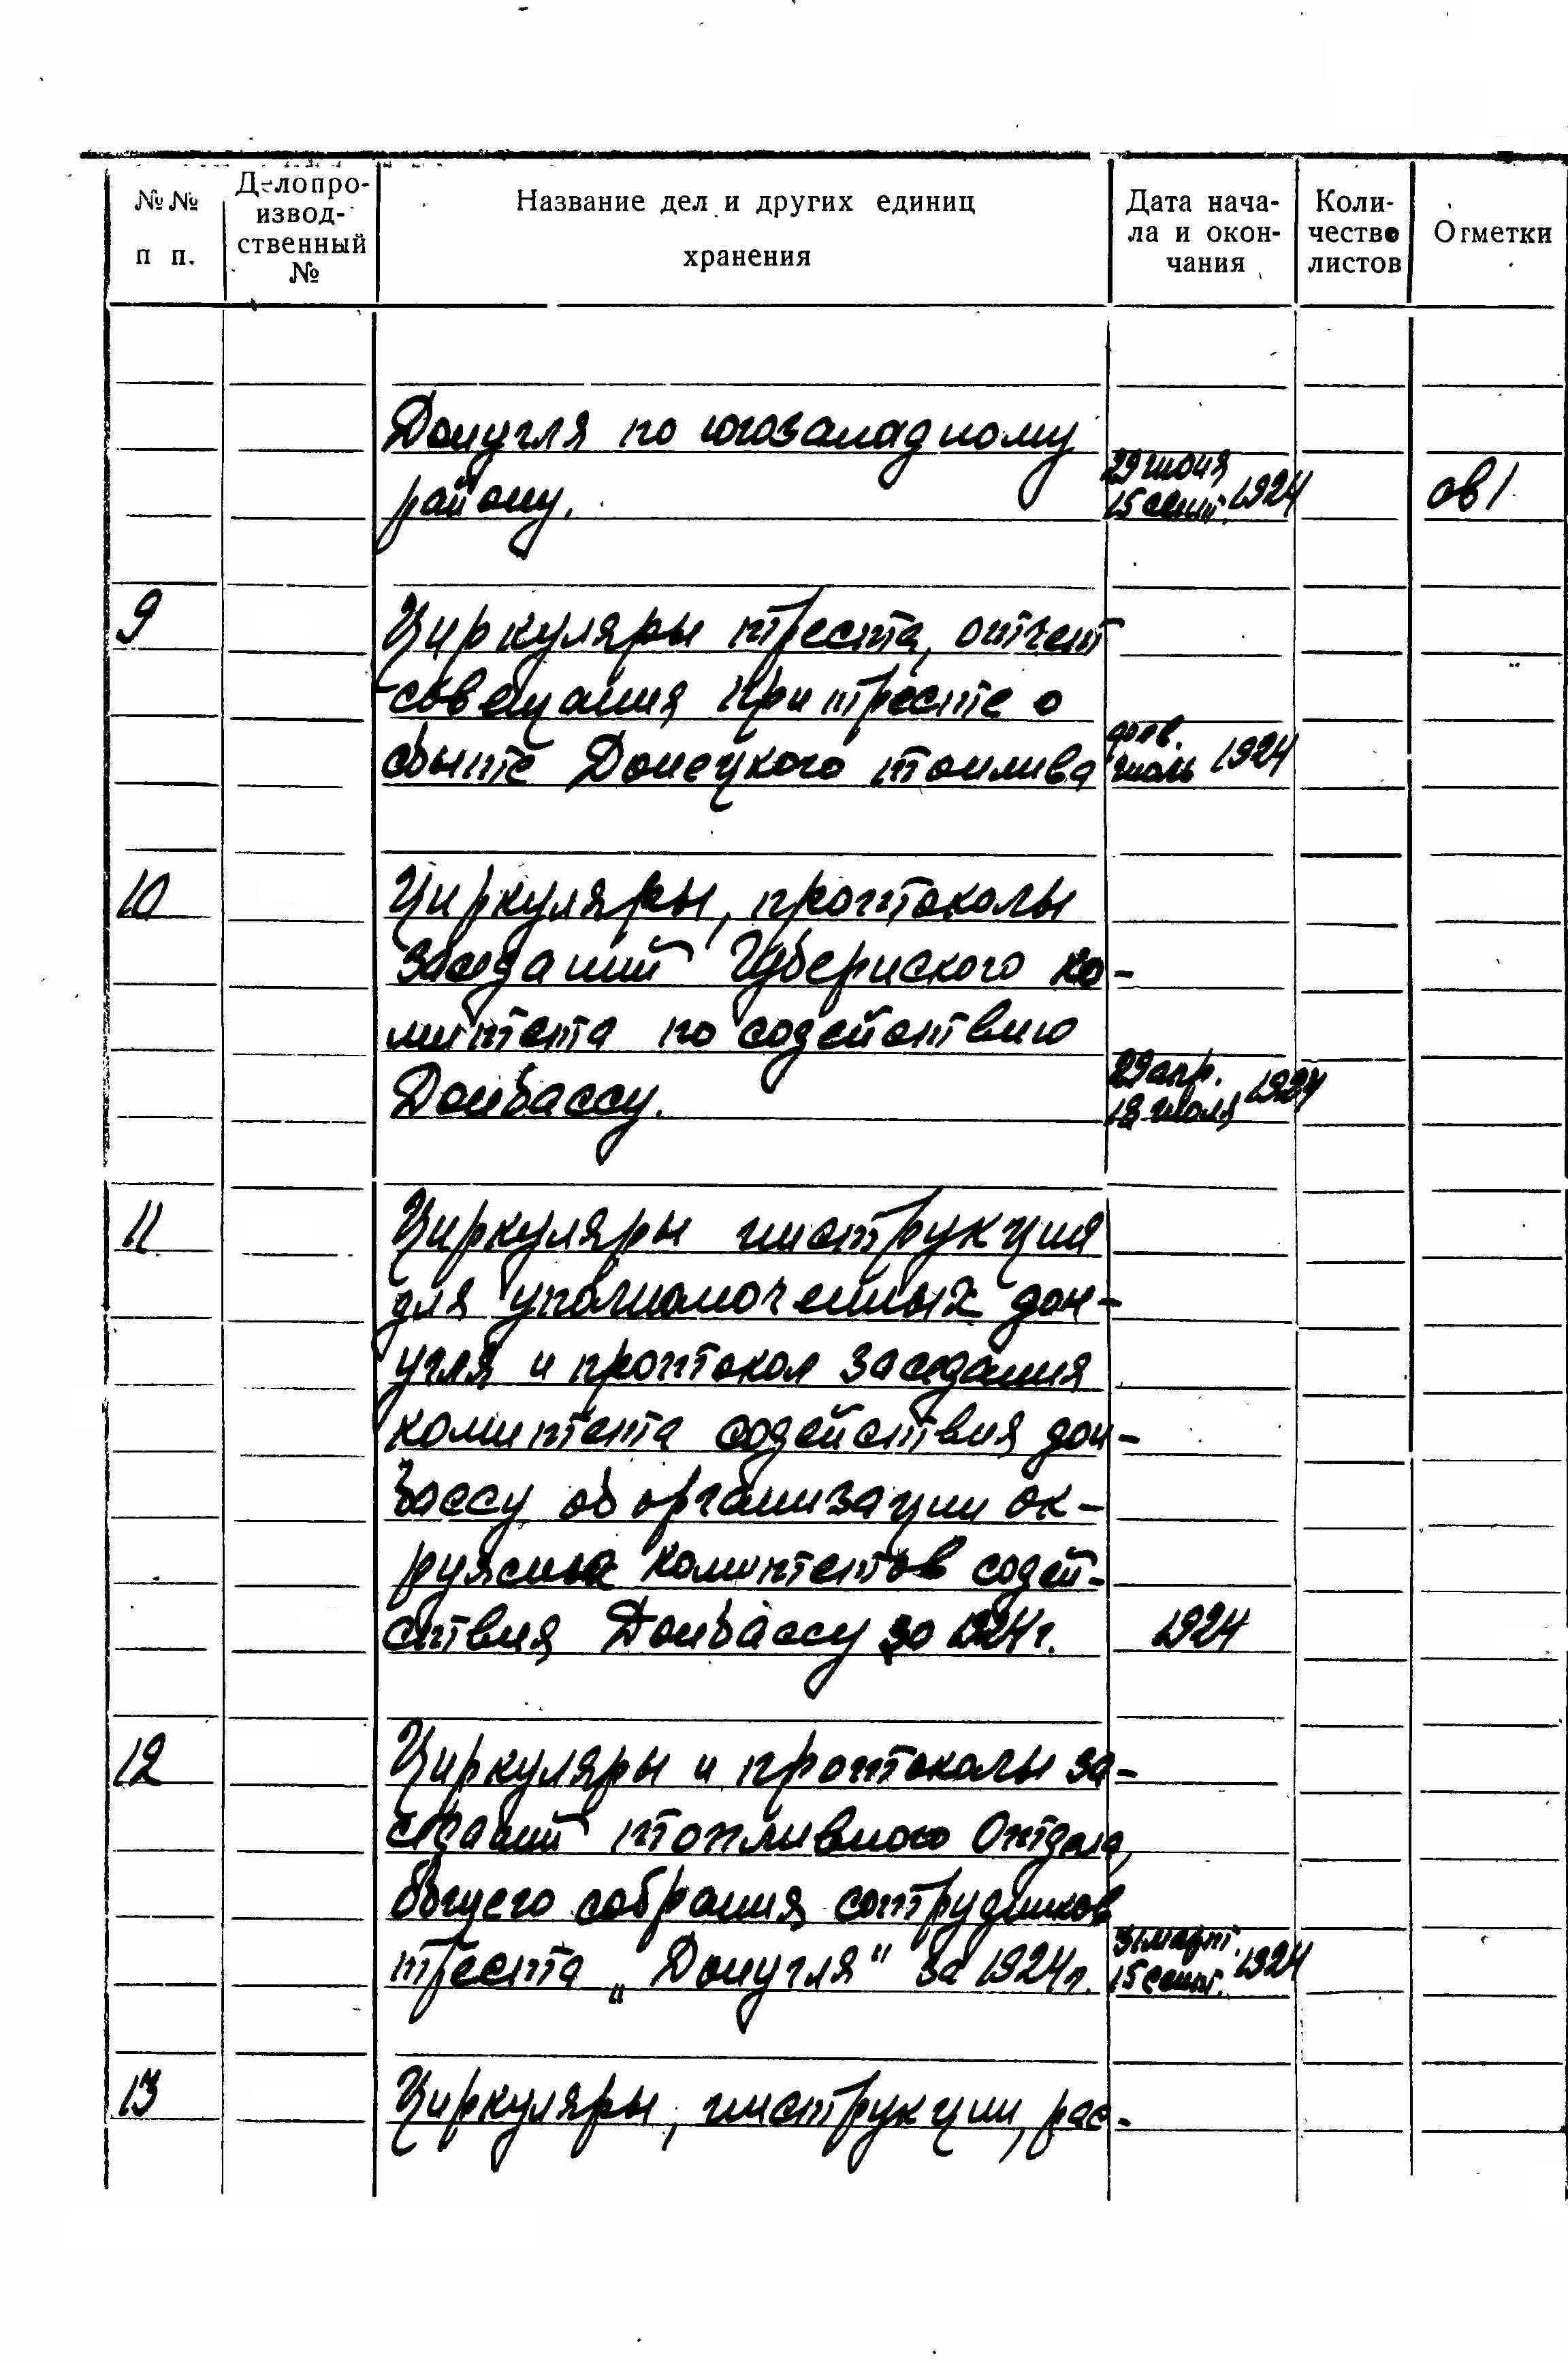 №№ п п.
Делопро-
извод-
ственный
№
Название дел и других единиц
хранения
Дата нача-
ла и окон-
чания
Коли-
чество
листов
Отметки
Донугля по югозападному
29 июня
району. 15 сент. 1924
9 Циркуляры треста, отчет
совещания при тресте о
сбыте Донецкого топлива июль 1924
10 Циркуляры, протоколы
заседаний Губернского ко-
митета по содействию
29 апр.
Донбассу. 18 июля 1924
11 Циркуляры инструкция
для уполномоченных дон-
угля и протокол заседания
комитета содействия дон-
бассу об организации ок-
ружных комитетов содей-
ствия Донбассу за 1924 г. 1924
12 Циркуляры и протоколы за-
седаний топливного отдела,
общего собрания сотрудников
31 март.
треста „Донугля" за 1924 г. 15 сент. 1924
13 Циркуляры, инструкции, рас-